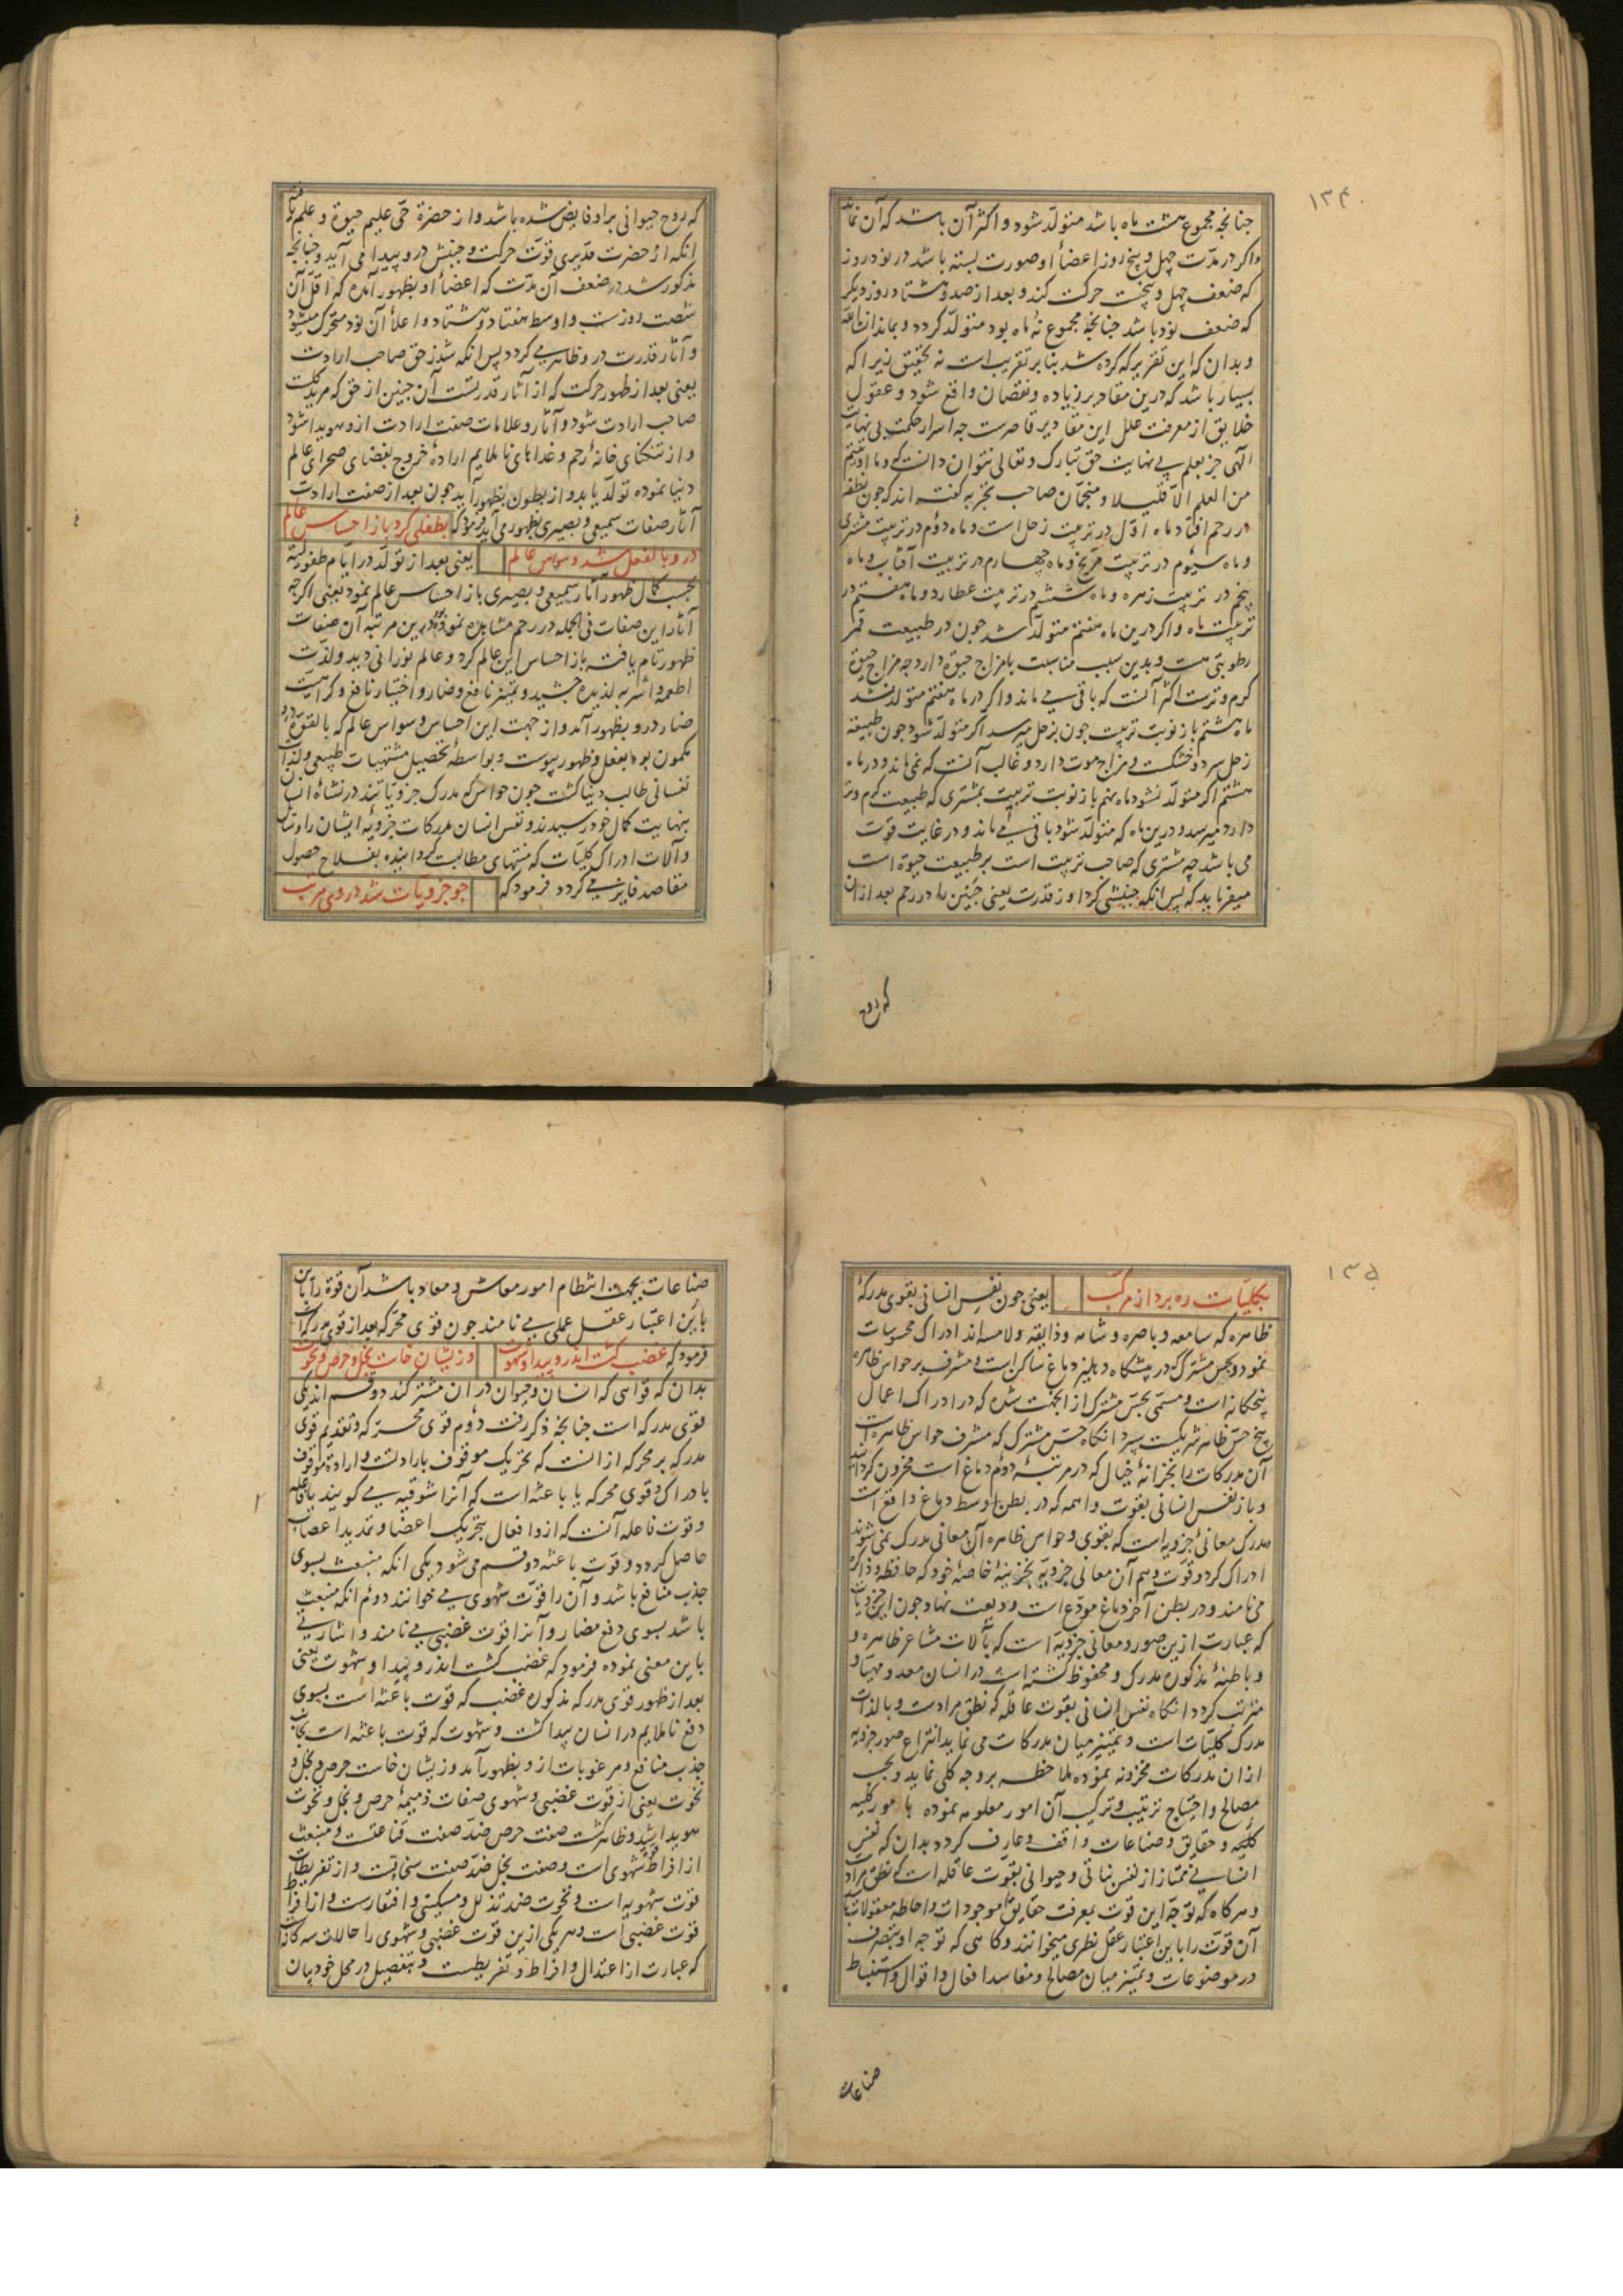 ۱۳۴
چنانچه مجموع هشت ماه باشد متولد شود و اکثر آن باشد که آن نماند
واکر در مدت چهل و پنج روز اعضاء او صورت بسته باشد در نود روز
که ضعف چهل و پنجست حرکت کند و بعد از صد و هشتاد روز دیکر
که ضعف نود باشد چنانچه مجموع نه ماه بود متولد کردد و بماند انشاالله
و بدان که این تقریر که کرده شد بنابر تقریب است نه تحقیق زیرا که
بسیار باشد که درین مقادیر زیاده و نقصان واقع شود و عقول
خلایق از معرفت علل این مقادیر قاصرست چه اسرار حکمت بی نهایت
الهی جز بعلم بی نهایت حق تبارک و تعالی نتوان دانست که و ما اوتیتم
من العلم الا قلیلا و منجمان صاحب تجربه کفته اند که چون نطفه
در رحم افتاد ماه اول در تربیت زحل است و ماه دوم در تربیت مشتری
و ماه سیوم در تربیت مریخ و ماه چهارم در تربیت آفتاب و ماه
پنجم در تربیت زهره و ماه ششم در تربیت عطارد و ماه هفتم در
تربیت ماه و اکر درین ماه هفتم متولد شد چون در طبیعت قمر
رطوبتی هست و بدین سبب مناسبت بامزاج حیوة دارد چه مزاج حیوة
کرم و ترست اکثر آنست که باقی می ماند و اکر در ماه هفتم متولد نشد
ماه هشتم باز نوبت تربیت چون بزحل میرسد اکر متولد شود چون طبیعة
زحل سرد و خشکست و مزاج موت دارد و غالب آنست که نمی ماند و در ماه
هشتم اکر متولد نشود ماه نهم باز نوبت تربیت بمشتری که طبیعت کرم و تر
دارد میرسد و درین ماه که متولد شود باقی می ماند و در غایت قوت
می باشد چه مشتری که صاحب تربیت است بر طبیعت حیوة است
میفرماید که پس انکه جنبشی کرد او ز قدرت یعنی جنین را در رحم بعد از ان
که روح
که روح حیوانی بر او فایض شده باشد و از حضرة حی علیم حیوة و علم یافته
انکه از حضرت قدیری قوت حرکت و جنبش درو پیدا می آید و چنانچه
مذکور شد در ضعف آن مدت که اعضاء او بظهور آمده که اقل آن
شصت روزست و اوسط هفتاد و هشتاد و اعلاء آن نود متحرک میشود
و آثار قدرت درو ظاهر می کردد پس انکه شد ز حق صاحب ارادت
یعنی بعد از ظهور حرکت که از آثار قدرتست آن جنین از حق که مرید کلست
صاحب ارادت شود و آثار و علامات صفت ارادت ازو هویدا شود
و از تنکنای خانه رحم و غداهای ناملایم اراده خروج بفضای صحرای عالم
دنیا نموده تولد یابد و از بطون بظهور آید چون بعد از صفت ارادت
آثار صفات سمیعی و بصیری بظهور می آید فرمود که بطفلی کرد باز احساس عالم
درو بالفعل شد وسواس عالم یعنی بعد از تولد در ایام طفولیة
بحسب کمال ظهور آثار سمیعی و بصیری باز احساس عالم نمود یعنی اکرچه
آثار این صفات فی الجمله در رحم مشاهده نموده درین مرتبه آن صفات
ظهور تام یافته باز احساس این عالم کرد و عالم نورانی دید و لذت
اطعمه و اشربه لذیده چشید و تمییز نافع و ضار و اختیار نافع و کراهیت
ضار درو بظهور آمد و از جهت این احساس وسواس عالم که بالقوة درو
مکمون بود بفعل و ظهور پیوست و بواسطه تحصیل مشتهیات طبیعی و لذات
نفسانی طالب دنیا کشت چون حواس که مدرک جزویاتند در نشاه انسان
بنهایت کمال خود رسیدند و نفس انسان مدرکات جزویه ایشان را وسایل
و آلات ادراک کلیات که منتهای مطالبست کردانیده بفلاح حصول
مقاصد فایز می کردد فرمود که چو جزویات شد در وی مرتب
۱۳۵
بکلیات ره برد از مرکب یعنی چون نفس انسانی بقوی مدرکهٔ
ظاهره که سامعه و باصره و شامه و ذایقه و لامسه اند ادراک محسوسات
نمود و بحس مشترک که در پیشکاه دهلیز دماغ ساکن است و مشرف بر حواس ظاهره
پنجکانه است و مسمی بحس مشترک از انجهت شده که در ادراک اعمال
پنج حس ظاهر شریکست سپرد انکاه حس مشترک که مشرف حواس ظاهره است
آن مدرکات را بخزانه خیال که در مرتبه دوم دماغ است مخزون کردانید
و باز نفس انسانی بقوت واهمه که در بطن اوسط دماغ واقع است
مدرک معانی جزویه است که بقوی و حواس ظاهره آن معانی مدرک نمی شوند
ادراک کرد و قوت وهم آن معانی جزویه بخزینه خاصه خود که حافظه و ذاکره
می نامند و در بطن آخر دماغ مودع است ودیعت نهاد چون این جزویات
که عبارت ازین صور و معانی جزویه است که بآلات مشاعر ظاهره و
و باطنهٔ مذکوره مدرک و محفوظ کشته است در انسان معد و مهیا و
مترتب کردد انکاه نفس انسانی بقوت عاقله که نطق مرادست و بالذات
مدرک کلیات است و تمییز میان مدرکات می نماید انتزاع صور جزویه
از ان مدرکات مخزونه نموده ملاحظه بر وجه کلی نماید و بحسب
مصالح و احتیاج ترتیب و ترکیب آن امور معلومه نموده بامور کلیه
کلیه و حقایق و صناعات واقف و عارف کردد بدان که نفس
انسانی ممتاز از نفس نباتی و حیوانی بقوت عاقله است که نطق مراد
و هرکاه که توجه این قوت بمعرفت حقایق موجودات و احاطه معقولات باشد
آن قوت را باین اعتبار عقل نظری میخوانند و کاهی که توجه او بتصرف
در موضوعات و تمییز میان مصالح و مفاسد افعال و اقوال و استنباط
صناعات
صناعات بجهت انتظام امور معاش و معاد باشد آن قوة را باین
باین اعتبار عقل عملی می نامند چون قوی محرکه بعد از قوی مدرکه است
فرمود که غضب کشت اندرو پیدا و شهوت وزیشان خاست بخل و حرص و نخوت
بدان که قوایی که انسان و حیوان در ان مشترکند دو قسم اند یکی
قوی مدرکه است چنانچه ذکر رفت دوم قوی محرکه و تقدیم قوی
مدرکه بر محرکه از انست که تحریک موقوف بارادتست و ارادة موقوف
بادراک و قوی محرکه یا باعثه است که آنرا شوقیه می کویند یا فاعله
و قوت فاعله آنست که ازو افعال بتحریک اعضا و تمدید اعصاب
حاصل کردد و قوت باعثه دو قسم می شود یکی انکه منبعث بسوی
جذب منافع باشد و آن را قوت شهوی می خوانند دوم انکه منبعث
باشد بسوی دفع مضار و آنرا قوت غضبی می نامند و اشارت
باین معنی نموده فرمود که غضب کشت اندرو پیدا و شهوت یعنی
بعد از ظهور قوی مدرکه مذکوره غضب که قوت باعثه است بسوی
دفع ناملایم در انسان پیدا کشت و شهوت که قوت باعثه است بجانب
جذب منافع و مرغوبات ازو بظهور آمد وزیشان خاست حرص و بخل و
نخوت یعنی از قوت غضبی و شهوی صفات ذمیمهٔ حرص و بخل و نخوت
هویدا شد و ظاهر کشت صفت حرص ضد صفت قناعتست و منبعث
از افراط قوت شهوی است و صفت بخل ضد صفت سخاوتست و از تفریط
قوت شهویه است و نخوت ضد تذلل و مسکینی و افتقارست و از افراط
قوت غضبی است و هر یکی ازین قوت غضبی و شهوی را حالات سه کانه است
که عبارت از اعتدال و افراط و تفریطست و بتفصیل در محل خود بیان